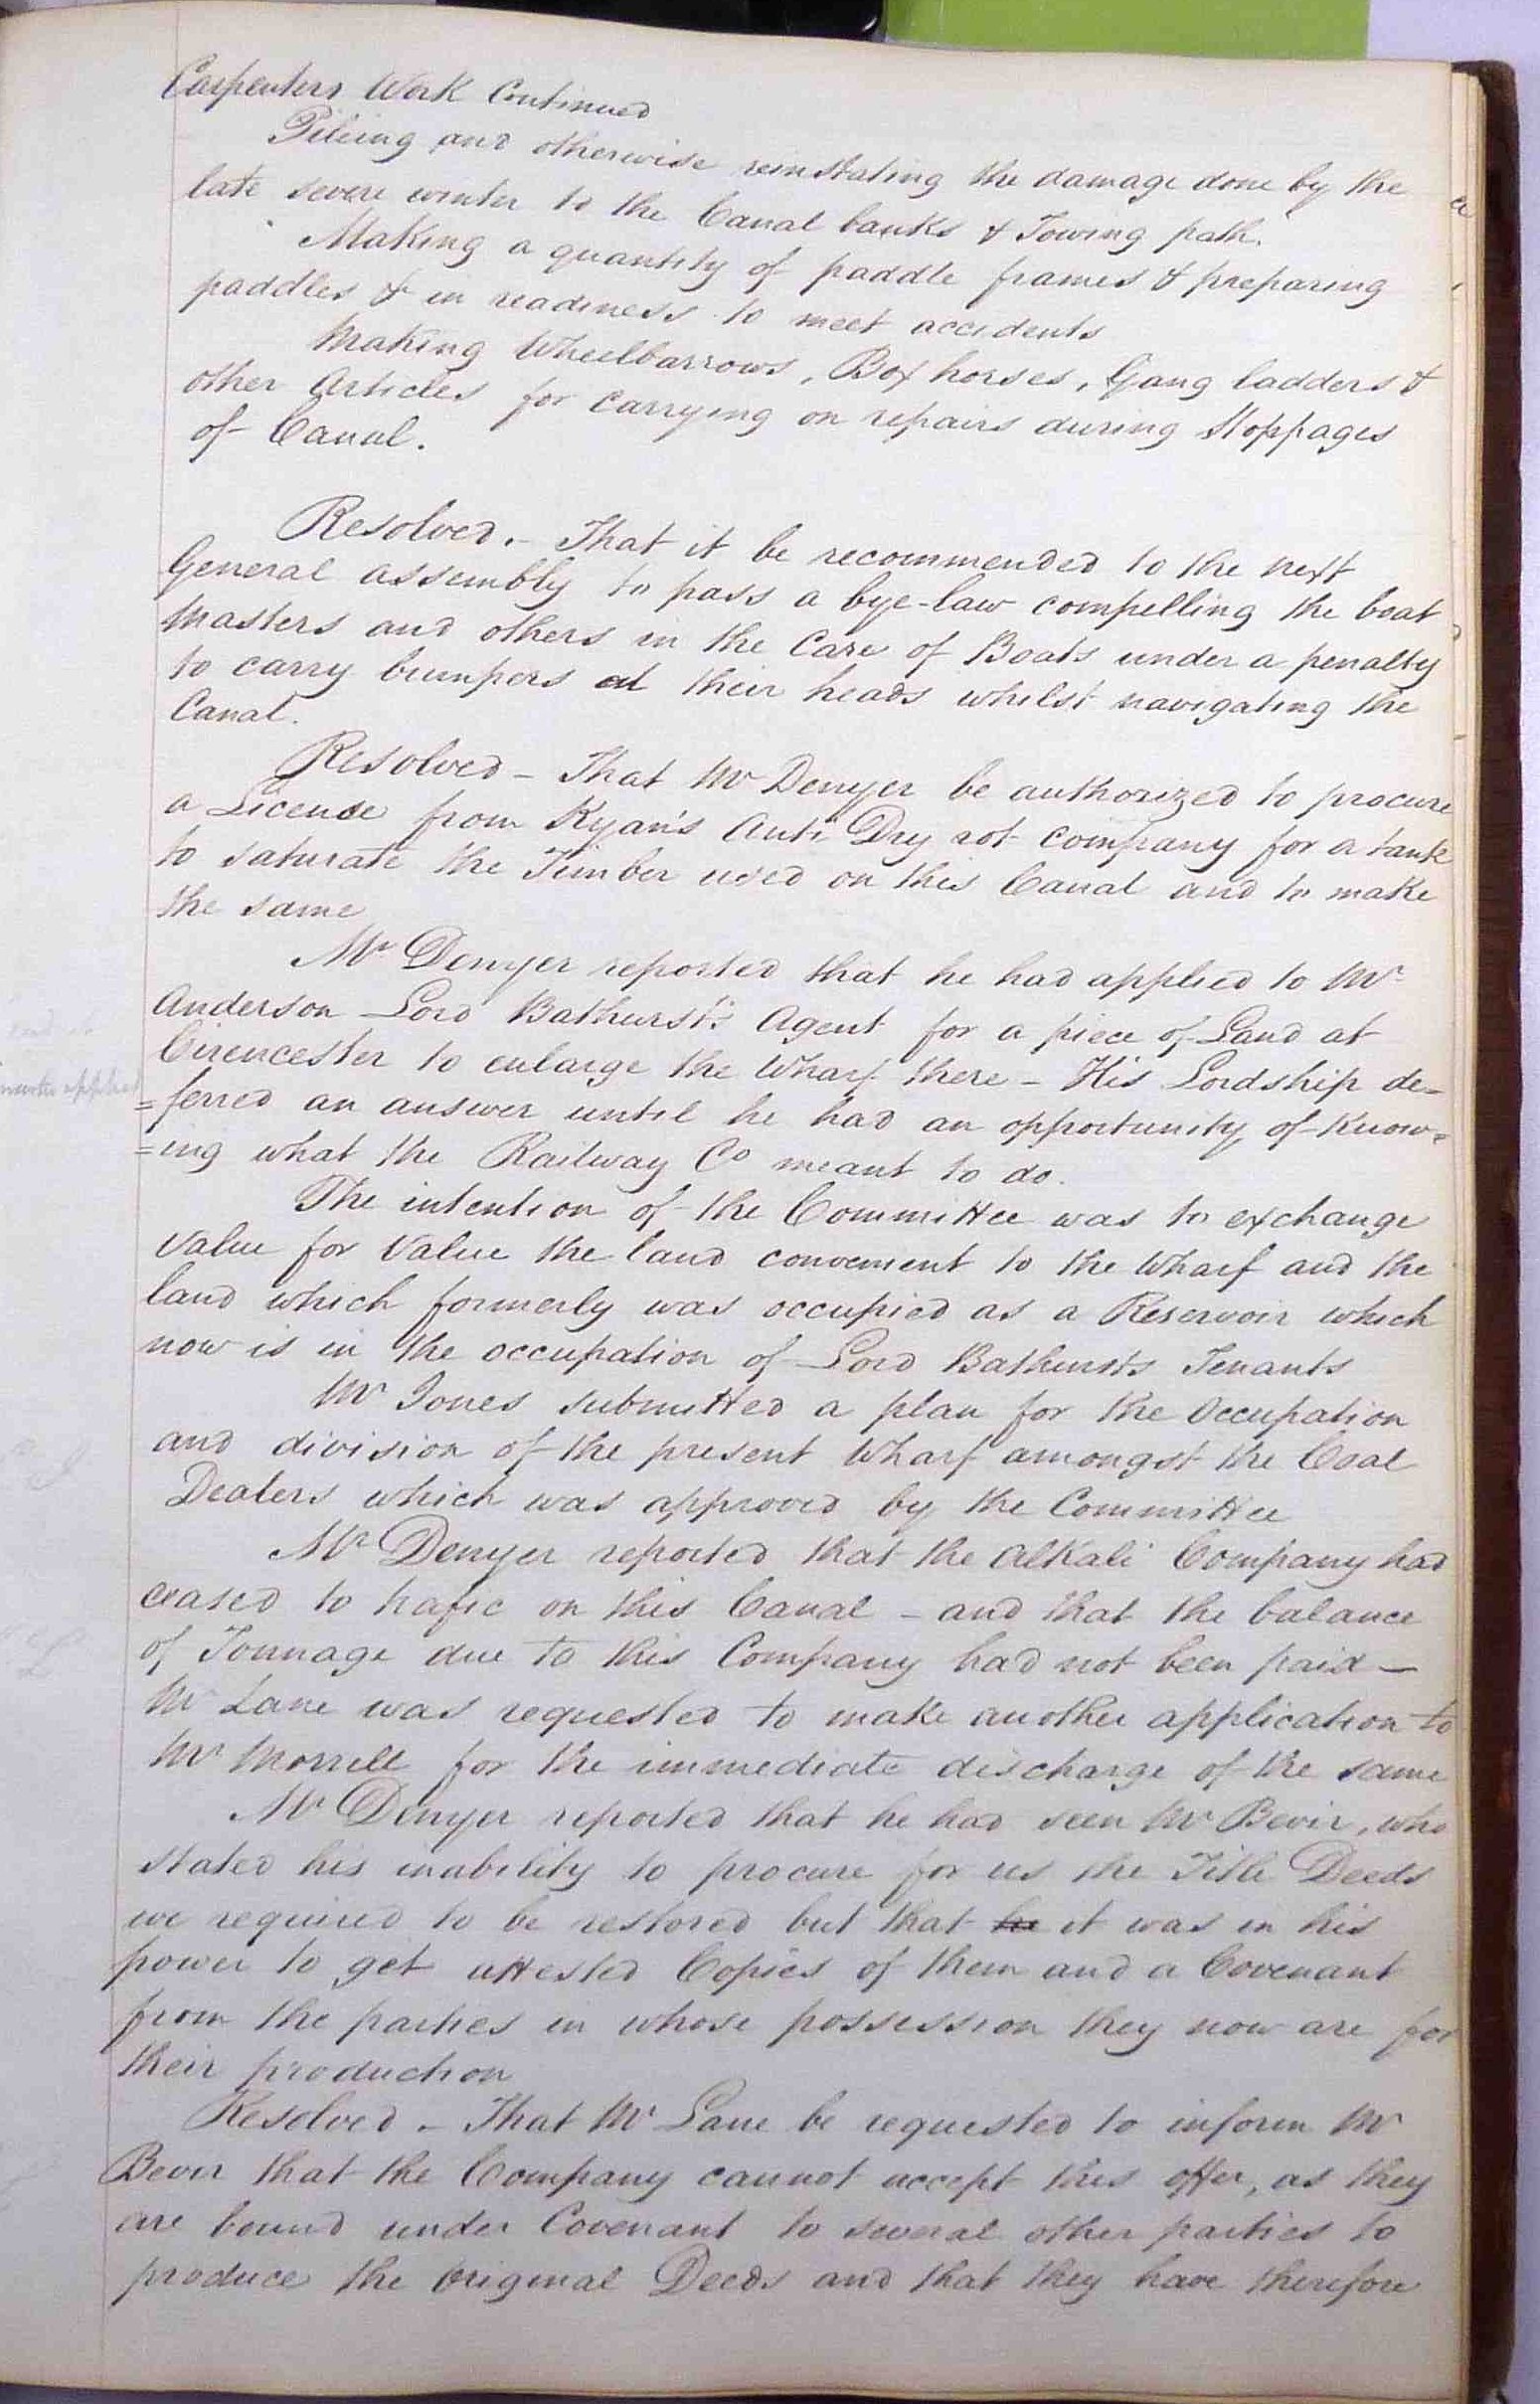 Carpenters Work Continued
Pileing and otherwise reinstating the damage done by the
late severe winter to the Canal banks & Towing path.
Making a quantity of paddle frames & preparing
paddles & in readiness to meet accidents
Making Wheelbarrows, Box horses, Gang ladders &
other Articles for carrying on repairs during Stoppages
of Canal.
Resolved. - That it be recommended to the next
General assembly to pass a bye-law compelling the boat
Masters and others in the Care of Boats under a penalty
to carry bumpers at their heads whilst navigating the
Canal.
Resolved - That Mr Denyer be authorized to procure
a License from Kyan's Anti Dry rot company for a tank
to saturate the Timber used on this Canal and to make
the same
Mr Denyer reported that he had applied to Mr
Anderson Lord Bathurst's Agent for a piece of Land at
Cirencester to enlarge the Wharf there - His Lordship de-
=ferred an answer until he had an opportunity of Know=
=ing what the Railway Co meant to do.
The intention of the Committee was to exchange
Value for Value the land convenient to the Wharf and the
land which formerly was occupied as a Reservoir which
now is in the occupation of Lord Bathursts Tenants
Mr Jones submitted a plan for the Occupation
and division of the present Wharf amongst the Coal
Dealers which was approved by the Committee
Mr Denyer reported that the Alkali Company had
ceased to trafic on this Canal - and that the balance
of Tonnage due to this Company had not been paid -
Mr Lane was requested to make another application to
Mr Morrell for the immediate discharge of the same
Mr Denyer reported that he had seen Mr Bevir, who
stated his inability to procure for us the Title Deeds
we required to be restored but that he it was in his
power to get attested Copies of them and a Covenant
from the parties in whose possession they now are for
their production
Resolved - That Mr Lane be requested to inform Mr
Bevir that the Company cannot accept this offer, as they
are bound under Covenant to several other parties to
produce the original Deeds and that they have therefore